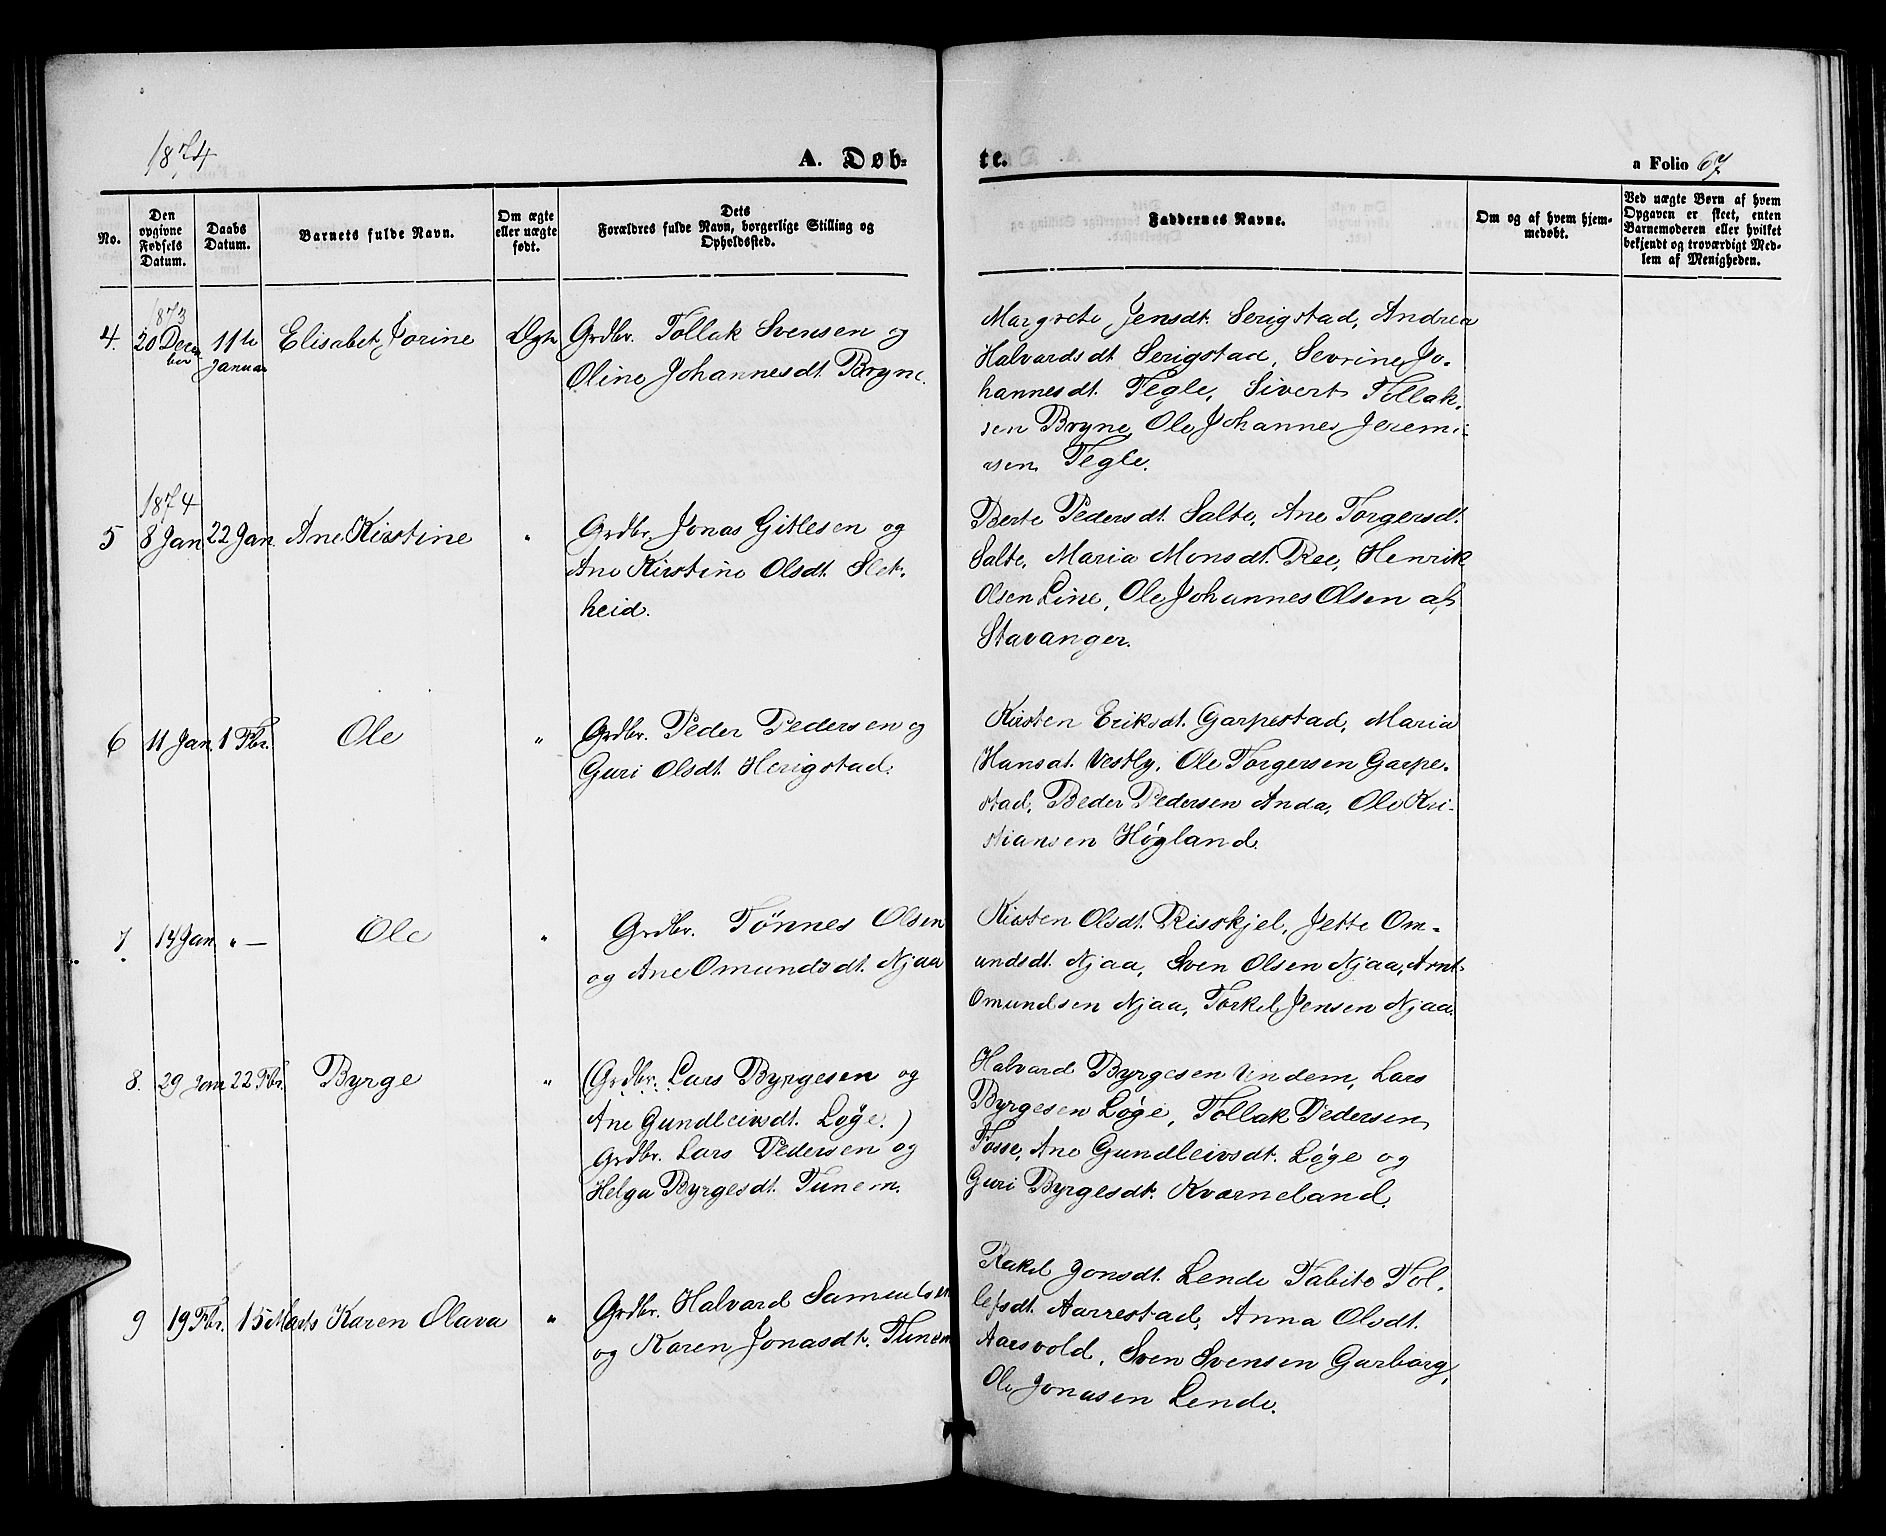 1874
A. Døb-
te.
a Folio 67
No.
Den
opgivne
Fødsels
Datum.
Daabs
Datum.
Barnets fulde Navn.
Om ægte
eller uægte
født.
Dets
Forældres fulde Navn, borgerlige Stilling og
Opholdssted.
Faddernes Navne.
Om og af hvem hjem-
medøbt.
Ved uægte Børn af hvem
Opgaven er skeet, enten
Barnemoderen eller hvilket
bekjendt og troværdigt Med-
lem af Menigheden.
1873
4. 20 Decem
ber
11te
Januar
Elisabet Jorine
Ægte
Grdbr. Tollak Svensen og
Oline Johannesdt. Bryne.
Margrete Jensdt. Serigstad, Andrea
Halvardsdt. Serigstad, Sevrine Jo-
hannesdt. Tegle, Sivert Tollak-
sen Bryne, Ole Johannes Jeremi-
asen Tegle.
1874
5 8 Jan 22 Jan. Ane Kirstine "
Grdbr. Jonas Gitlesen og
Ane Kirstine Olsdt. Slet-
heid.
Berte Pedersdt. Salte, Ane Torgersdt.
Salte, Maria Monsdt. Ree, Henrik
Olsen Line, Ole Johannes Olsen af
Stavanger.
6 11 Jan. 1 Fbr. Ole "
Grdbr. Peder Pedersen og
Guri Olsdt. Herigstad.
Kirsten Eriksdt. Garpestad, Maria
Hansdt. Vestly, Ole Torgersen Garpe-
stad, Peder Pedersen Anda, Ole Kri-
stiansen Høgland.
7. 14 Jan. " — Ole "
Grdbr. Tønnes Olsen
og Ane Omundsdt. Njaa
Kirsten Olsdt. Risskjel, Jette Om-
undsdt. Njaa, Sven Olsen Njaa, Arnt
Omundsen Njaa, Torkel Jensen Njaa.
8. 29 Jan 22 Fbr. Byrge "
(Grdbr. Lars Byrgesen og
Ane Gundleivsdt. Løge.)
Grdbr. Lars Pedersen og
Helga Byrgesdt. Tunem.
Halvard Byrgesen Undem, Lars
Byrgesen Løge, Tollak Pedersen
Fosse, Ane Gundleivsdt. Løge og
Guri Byrgesdt. Kværneland.
9 19 Fbr. 15 Marts Karen Olava "
Grdbr. Halvard Samuelsen
og Karen Jonasdt. Tunem
Rakel Jonsdt. Lende Tabite Tol-
lefsdt. Aarrestad, Anna Olsdt.
Aarsvold, Sven Svensen Garborg,
Ole Jonasen Lende.